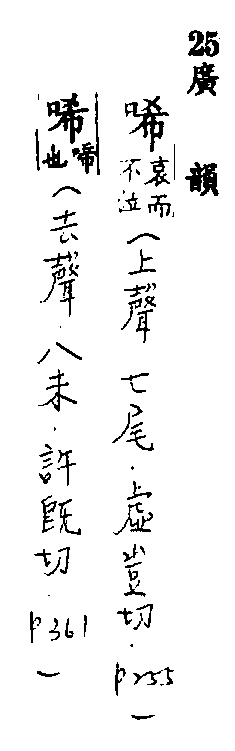 25廣韻
唏哀而不泣(上聲 七尾．虛豈切．p255)
唏啼也(去聲．八未．許既切．p361)